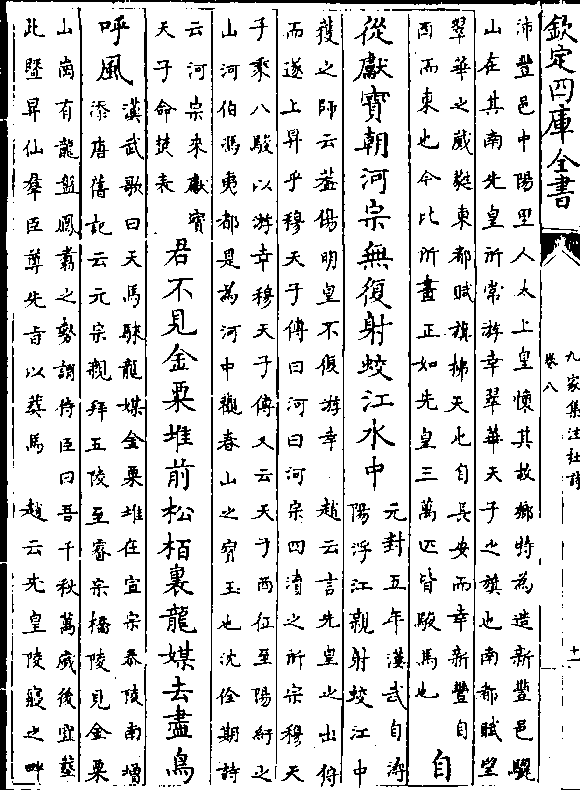 欽定四庫全書
九家集注杜詩
卷八
十一
沛豐邑中陽里人太上皇懷其故鄉特為造新豐邑驪
山在其南先皇所常游幸翠華天子之旗也南都賦望
翠華之葳蕤東都賦旗拂天也自長安而幸新豐自
西而東也今比所畫正如先皇三萬匹皆駿馬也
自
從獻寳朝河宗無復射蛟江水中
元封五年漢武自潯
陽浮江親射蛟江中
獲之師云葢傷明皇不復游幸
趙云言先皇之出狩
而遂上昇乎穆天子傳曰河曰河宗四瀆之所宗穆天
子乘八駿以游幸穆天子傳又云天子西征至陽紆之
山河伯馮夷都是為河中觀春山之寳玉也沈佺期詩
云河宗來獻寳
天子命焚表
君不見金粟堆前松栢裏龍媒去盡鳥
呼風
漢武歌曰天馬騋龍媒金粟堆在宣宗泰陵南増
添唐舊記云元宗觀拜五陵至睿宗橋陵見金粟
山崗有龍盤鳳翥之勢謂侍臣曰吾千秋萬歲後宜葬
此暨昇仙羣臣尊先旨以葬焉
趙云先皇陵寢之畔